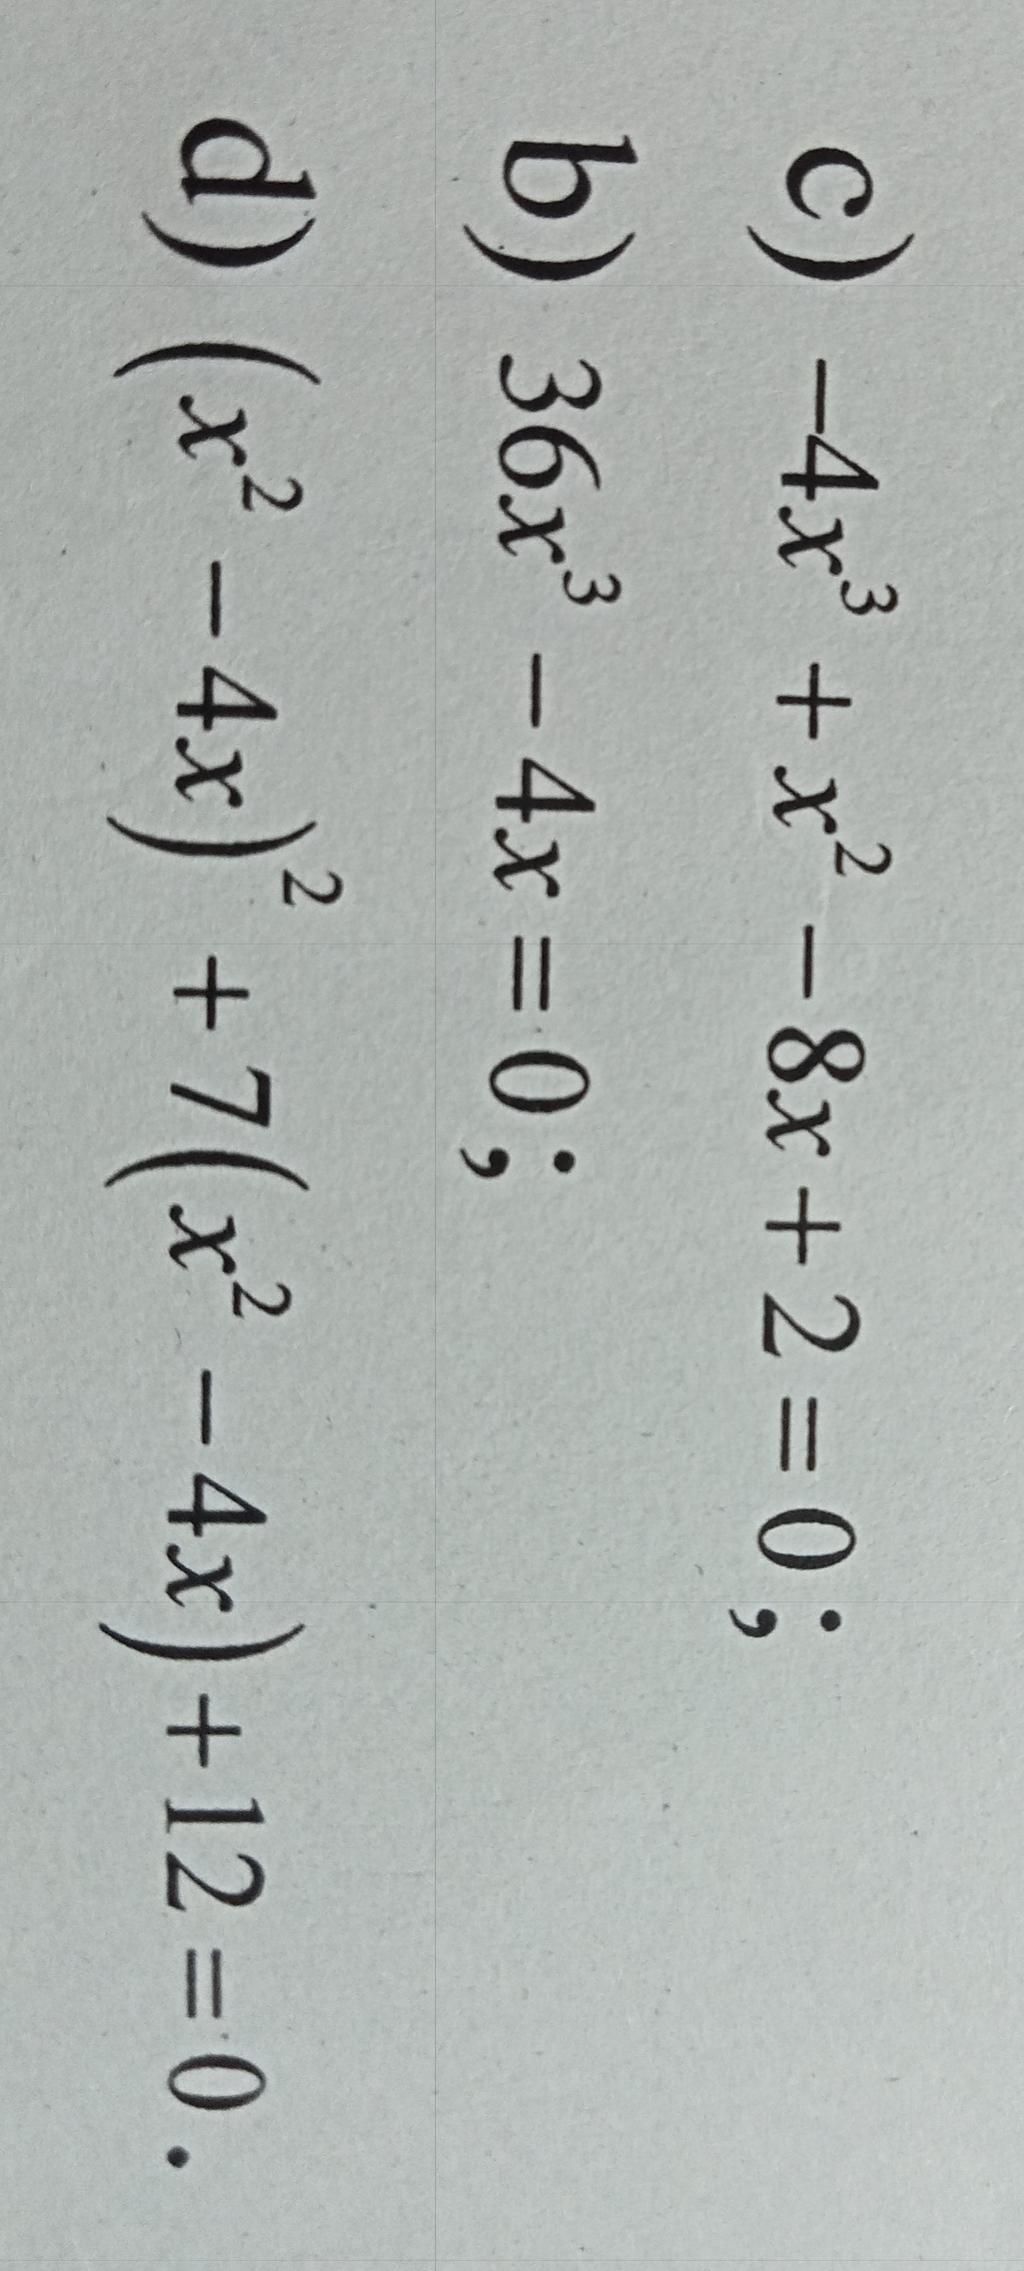 c) −4x³ + x² − 8x + 2 = 0;
b) 36x³ − 4x = 0;
d) (x² − 4x)² + 7(x² − 4x) + 12 = 0.